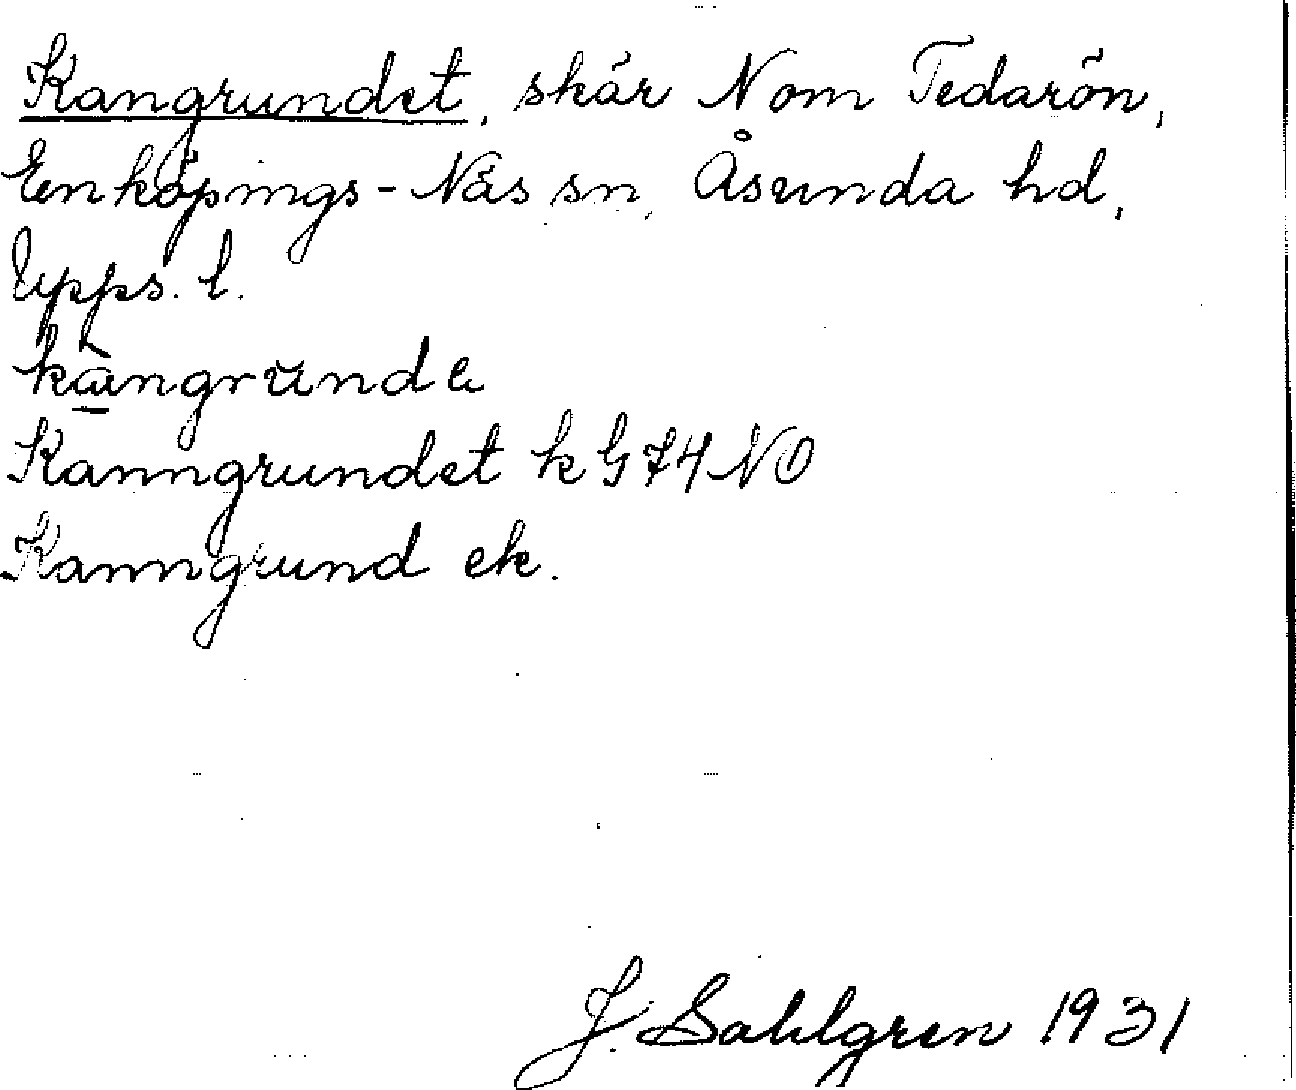 Kangrundet, skär N om Tedarön,
Enköpings-Näs sn, Åsunda hd,
Upps. l.
kàngrunde
Kanngrundet k G 74 NO
Kanngrund ek.
J. Sahlgren 1931